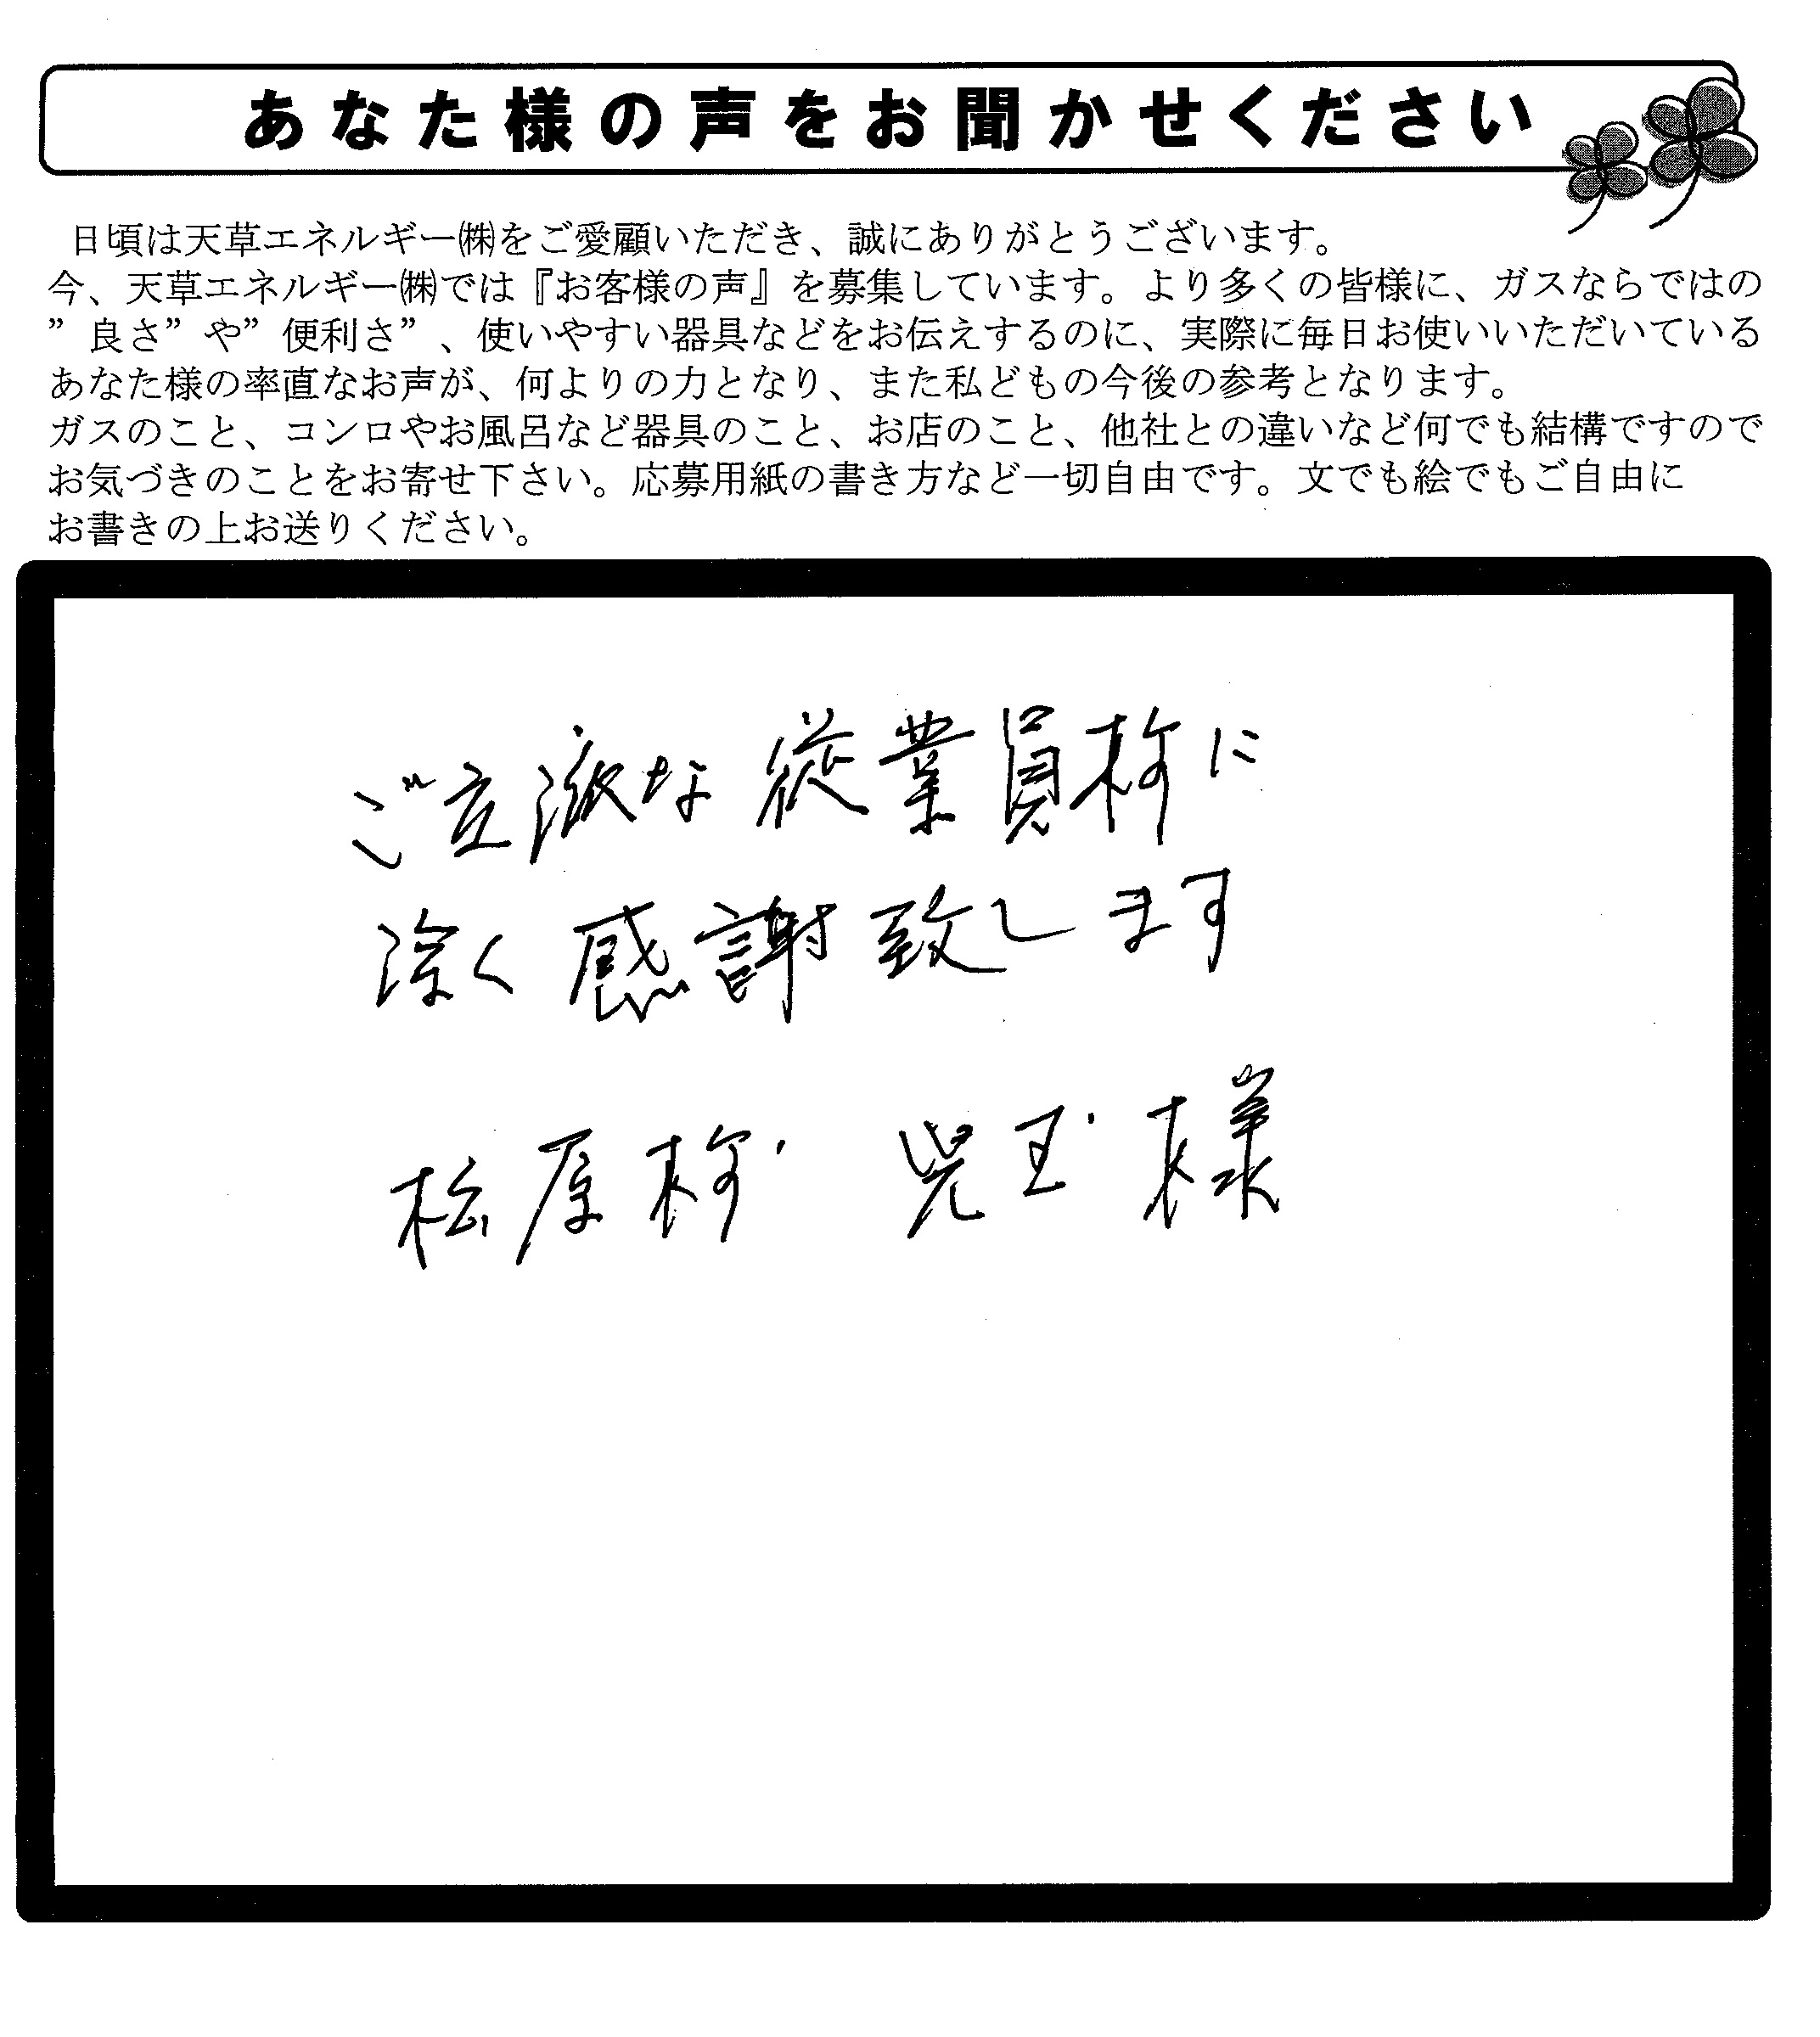 あなた様の声をお聞かせください
日頃は天草エネルギー㈱をご愛顧いただき、誠にありがとうございます。
今、天草エネルギー㈱では『お客様の声』を募集しています。より多くの皆様に、ガスならではの
”良さ”や”便利さ”、使いやすい器具などをお伝えするのに、実際に毎日お使いいただいている
あなた様の率直なお声が、何よりの力となり、また私どもの今後の参考となります。
ガスのこと、コンロやお風呂など器具のこと、お店のこと、他社との違いなど何でも結構ですので
お気づきのことをお寄せ下さい。応募用紙の書き方など一切自由です。文でも絵でもご自由に
お書きの上お送りください。
ご立派な従業員様に
深く感謝致します
松原様 児玉様